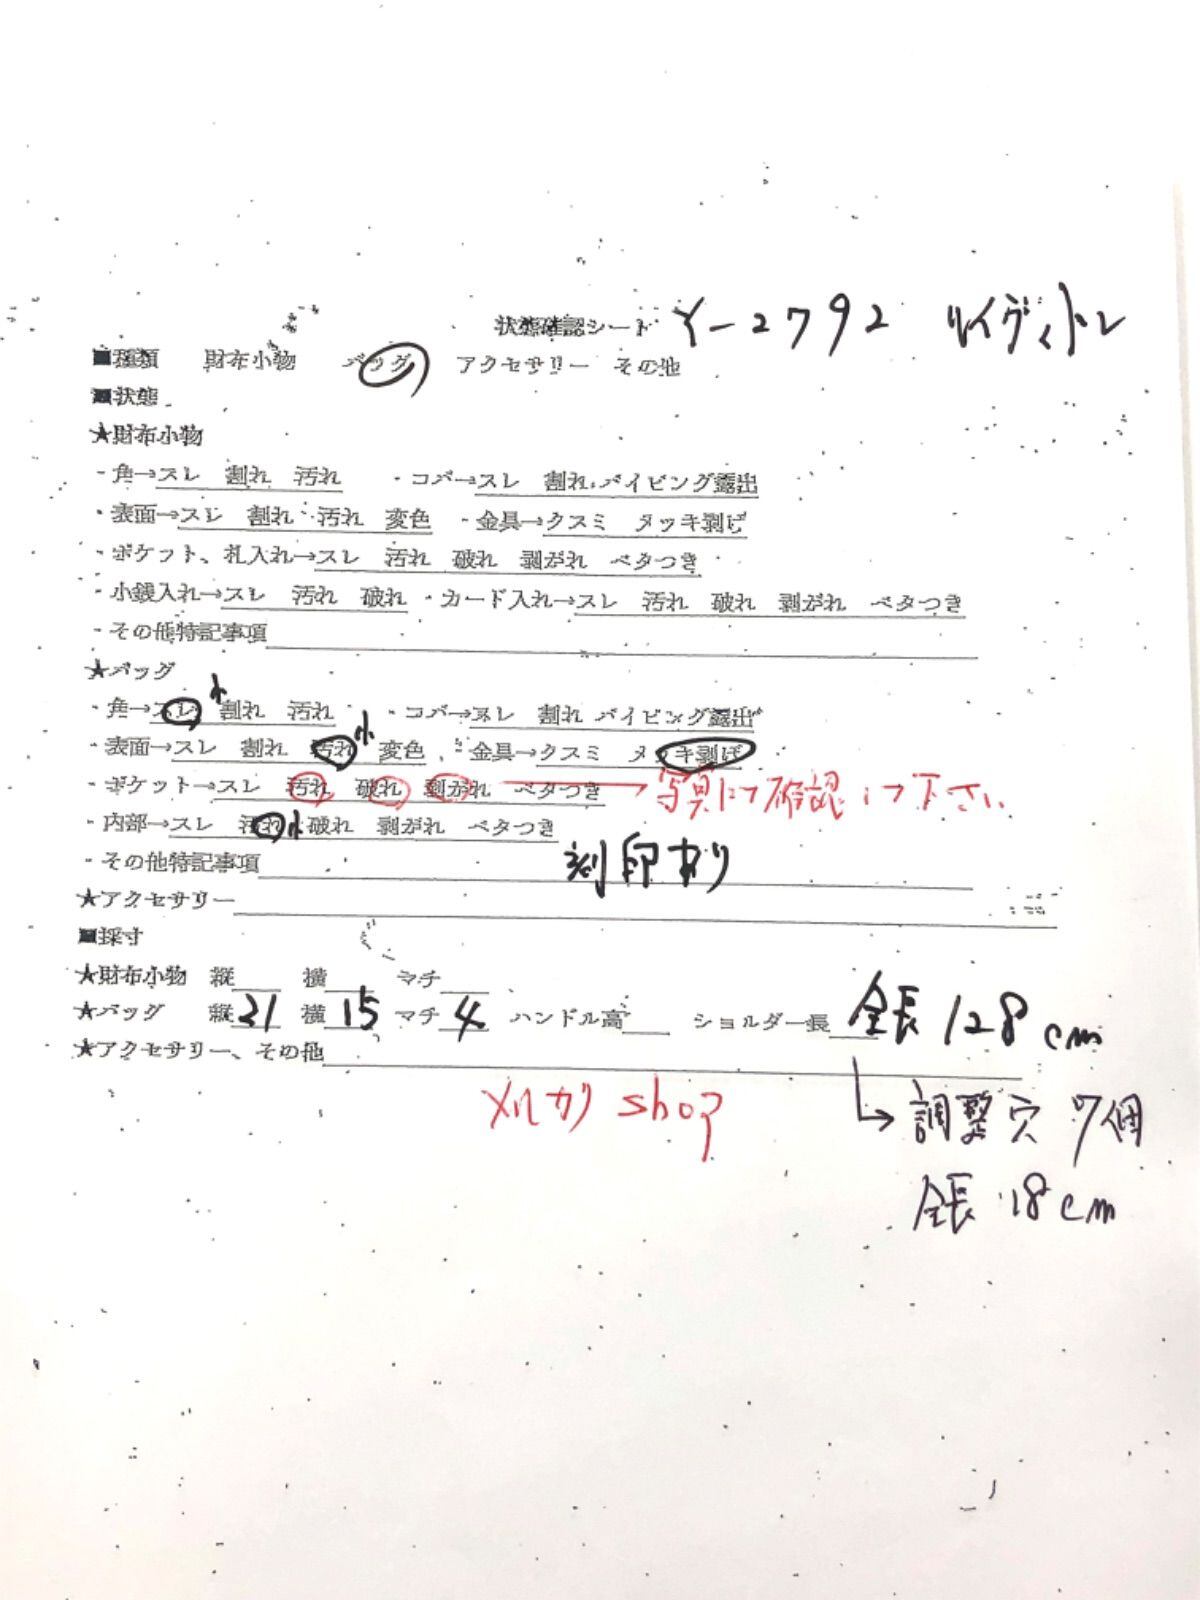 状態確認シート Y-2792 ルイヴィトン
■種類 財布小物 バッグ アクセサリー その他
■状態
★財布小物
・角→スレ 割れ 汚れ ・コバ→スレ 割れ パイピング露出
・表面→スレ 割れ 汚れ 変色 ・金具→クスミ メッキ剥げ
・ポケット、札入れ→スレ 汚れ 破れ 剥がれ ベタつき
・小銭入れ→スレ 汚れ 破れ ・カード入れ→スレ 汚れ 破れ 剥がれ ベタつき
・その他特記事項
★バッグ
・角→スレ 小 割れ 汚れ ・コバ→スレ 割れ パイピング露出
・表面→スレ 割れ 汚れ 小 変色 ・金具→クスミ メッキ剥げ
・ポケット→スレ 汚れ 破れ 剥がれ ベタつき → 写真にて確認して下さい
・内部→スレ 汚れ 小 破れ 剥がれ ベタつき
・その他特記事項 刻印あり
★アクセサリー
■採寸
★財布小物 縦 横 マチ
★バッグ 縦21 横15 マチ4 ハンドル高 ショルダー長 全長128cm
★アクセサリー、その他
メルカリshop
↳調整穴 7個
全長18cm